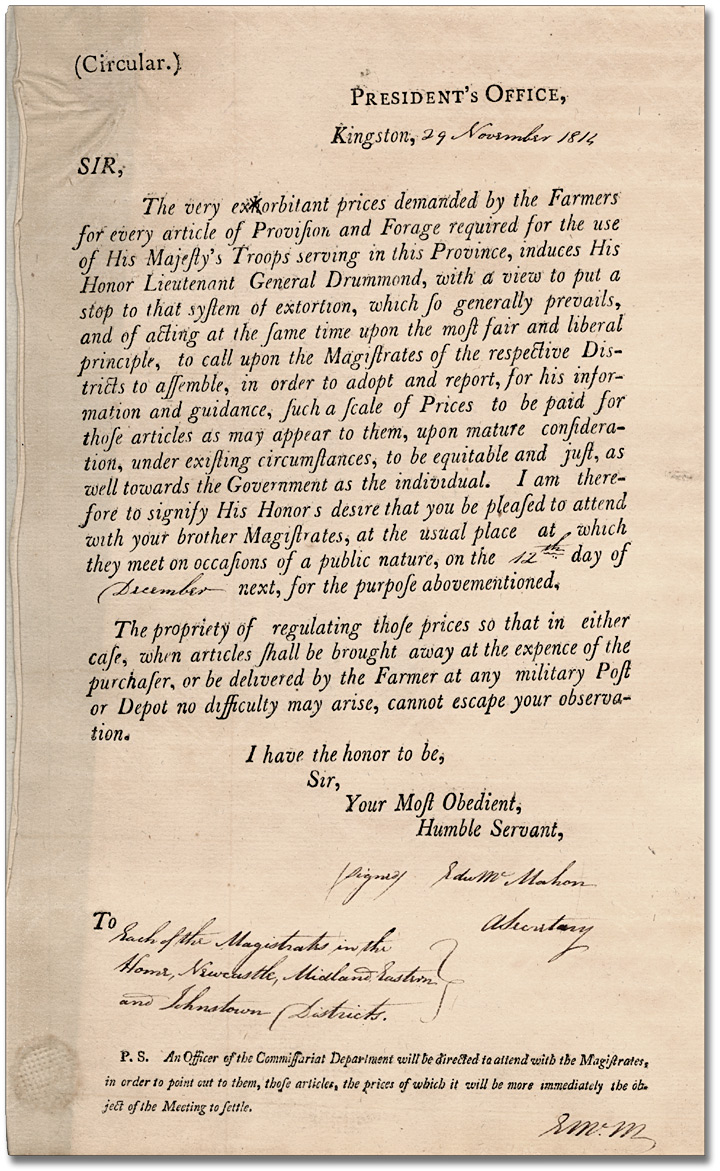 (Circular.)
PRESIDENT'S OFFICE,
Kingston, 29 November 1814
SIR,
The very exhorbitant prices demanded by the Farmers
for every article of Proviſion and Forage required for the use
of His Majeſty's Troops serving in this Province, induces His
Honor Lieutenant General Drummond, with a view to put a
stop to that syſtem of extortion, which ſo generally prevails,
and of acting at the ſame time upon the moſt fair and liberal
principle, to call upon the Magiſtrates of the respective Diſ-
tricts to aſſemble, in order to adopt and report, for his infor-
mation and guidance, ſuch a ſcale of Prices to be paid for
thoſe articles as may appear to them, upon mature conſidera-
tion, under exiſting circumſtances, to be equitable and juſt, as
well towards the Government as the individual. I am there-
fore to signify His Honors deſire that you be pleaſed to attend
with your brother Magiſtrates, at the usual place at which
they meet on occaſions of a public nature, on the 12th day of
December next, for the purpoſe abovementioned.
The propriety of regulating thoſe prices so that in either
caſe, when articles ſhall be brought away at the expence of the
purchaſer, or be delivered by the Farmer at any military Poſt
or Depot no difficulty may ariſe, cannot escape your obſerva-
tion.
I have the honor to be,
Sir,
Your Moſt Obedient,
Humble Servant,
(signed) Edw Mc Mahon
A Secretary
To
Each of the Magistrates in the
Home, Newcastle, Midland Eastern
and Johnstown Districts.
P. S. An Officer of the Commiſſariat Department will be directed to attend with the Magiſtrates,
in order to point out to them, thoſe articles, the prices of which it will be more immediately the ob-
ject of the Meeting to ſettle.
E Mc. M